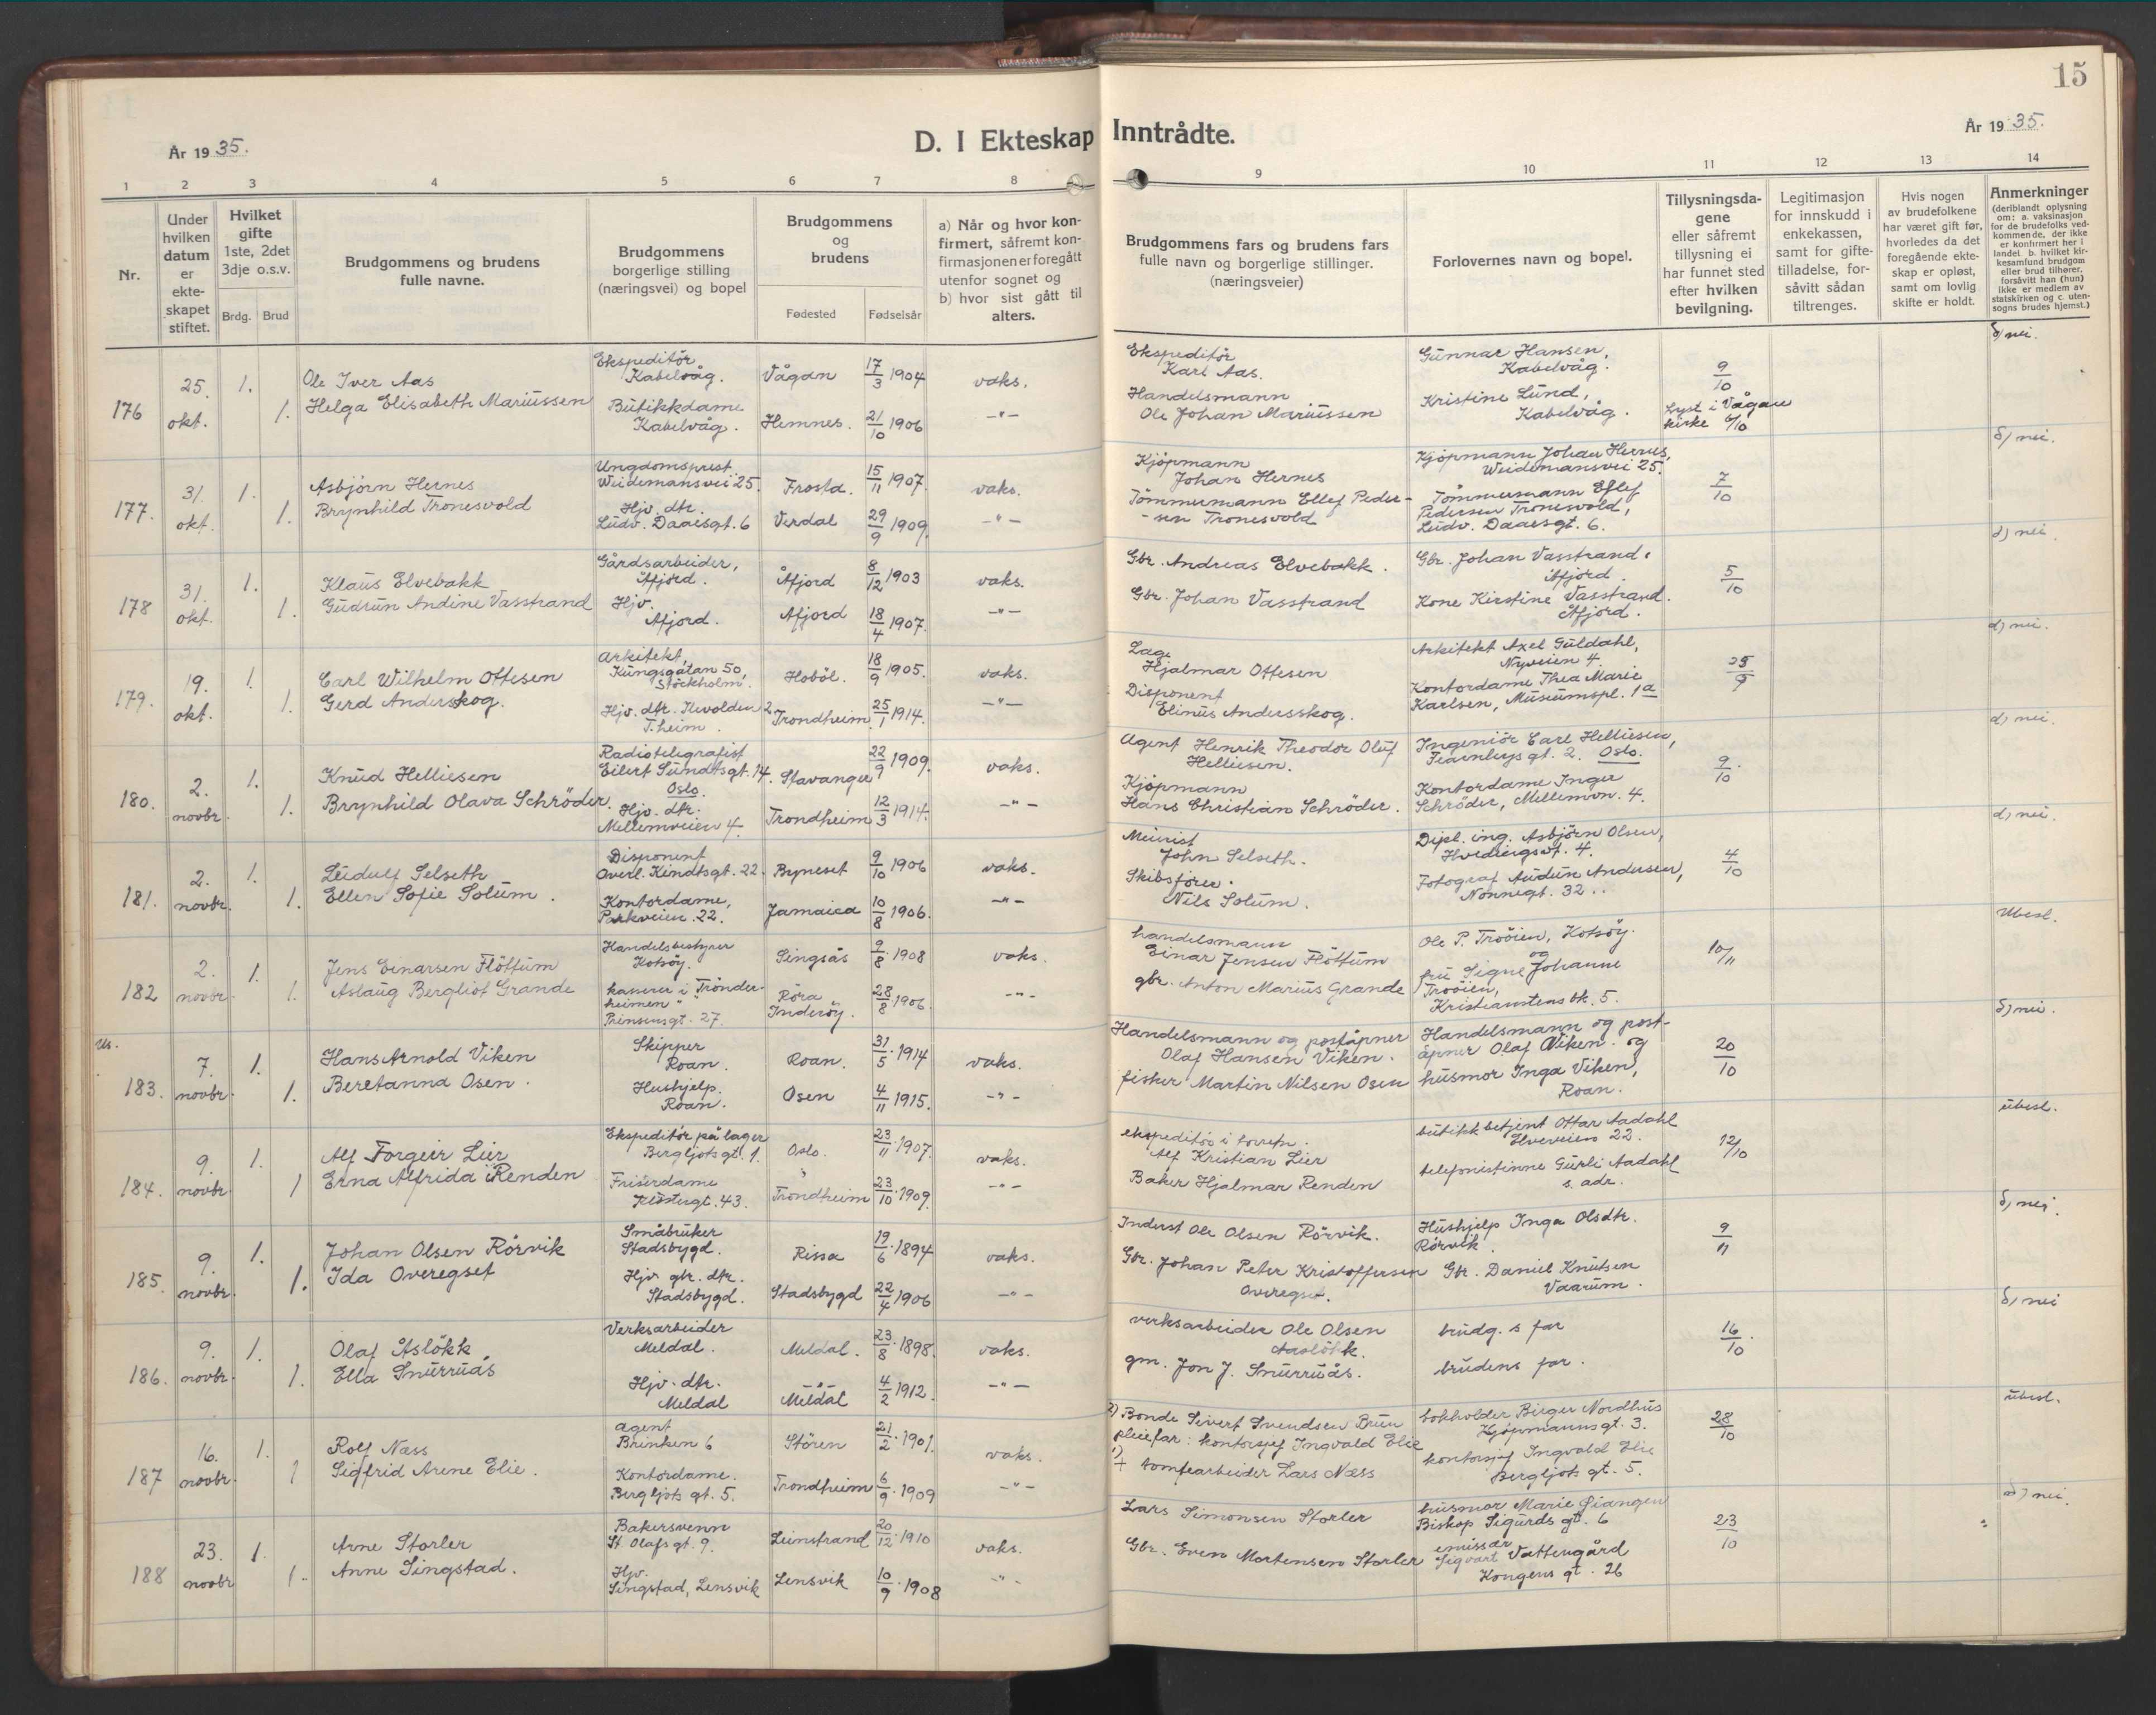 År 1935.
D. I Ekteskap
1 2 3 4 5 6 7 8
Nr.
Under hvilken datum er ekteskapet stiftet.
Hvilket gifte 1ste, 2det 3dje o.s.v.
Brdg. Brud
Brudgommens og brudens fulle navne.
Brudgommens borgerlige stilling (næringsvei) og bopel
Brudgommens og brudens
Fødested Fødselsår
a) Når og hvor konfirmert, såfremt konfirmasjonen er foregått utenfor sognet og b) hvor sist gått til alters.
176 25. okt. 1. 1.
Ole Iver Aas
Helga Elisabeth Mariussen
Ekspeditör Kabelvåg. Vågan 17/3 1904 vaks.
Butikkdame Kabelvåg. Hemnes. 21/10 1906 -"-
177. 31. okt. 1. 1.
Asbjörn Hernes
Brynhild Tronesvold
Ungdomsprest Weidemansvei 25. Frosta. 15/11 1907. vaks.
Hjv. dtr. Ludv. Daaesgt. 6 Verdal 29/9 1909. -"-
178 31. okt. 1. 1.
Klaus Elvebakk
Gudrun Andine Vasstrand
Gårdsarbeider, Åfjord. Åfjord 8/12 1903 vaks.
Hjv. Åfjord. Åfjord 18/4 1907. -"-
179. 19. okt. 1. 1.
Carl Wilhelm Ottesen
Gerd Anderskog.
Arkitekt, Kungsgatan 50, Stockholm. Hoböl. 18/9 1905. vaks.
Hjv. dtr. 2 T.heim. Trondheim 25/1 1914. -"-
180. 2. novbr. 1. 1.
Knud Helliesen
Brynhild Olava Schröder.
Radiotelegrafist Eilert Sundtsgt. 14. Oslo. Stavanger 22/9 1909. vaks.
Hjv. dtr. Mellemveien 4. Trondheim 12/3 1914. -"-
181. 2. novbr. 1. 1.
Leidulf Selseth
Ellen Sofie Solum.
Disponent Overl. Kindtsgt. 22. Byneset 9/10 1906 vaks.
Kontordame, Parkveien 22. Jamaica 10/8 1906. -"-
182 2. novbr. 1. 1.
Jens Einarsen Flöttum
Aslaug Bergliot Grande
Handelsbestyrer Kotsöy. Singsås 9/8 1908 vaks.
kasserer i Trönderheimen" Prinsensgt. 27. Röra Inderöy. 28/8 1906. -"-
183. 7. novbr. 1. 1.
Hans Arnold Viken
Beretanna Osen.
Skipper Roan. Roan. 31/5 1914 vaks.
Hushjelp. Roan. Osen 4/11 1915. -"-
184. 9. novbr. 1. 1
Alf Torgeir Lier
Erna Alfrida Renden
Ekspeditör på lager Bergljotsgt. 1. Oslo. 23/11 1907. vaks.
Friserdame Klostergt. 43. Trondheim 23/10 1909. -"-
185. 9. novbr. 1. 1.
Johan Olsen Rörvik
Ida Overegset
Småbruker Stadsbygd. Rissa 19/6 1894 vaks.
Hjv. gbr. dtr. Stadsbygd. Stadsbygd 22/4 1906 -"-
186. 9. novbr. 1. 1.
Olaf Åslökk
Ella Snurruås
Verksarbeider Meldal. Meldal. 23/8 1898. vaks.
Hjv. dtr. Meldal Meldal 4/2 1912. -"-
187 16. novbr. 1. 1
Rolf Næss
Sigfrid Arene Elie.
agent Brinken 6 Stören 21/2 1901. vaks.
Kontordame. Bergljots gt. 5. Trondheim 6/9 1909 -"-
188 23. novbr 1. 1.
Arne Storler
Anne Singstad.
Bakersvenn St. Olafs gt. 9. Leinstrand 20/12 1910 vaks.
Hjv. Singstad, Lensvik Lensvik 10/9 1908 -"-
15
Inntrådte.
År 1935.
9 10 11 12 13 14
Brudgommens fars og brudens fars fulle navn og borgerlige stillinger. (næringsveier)
Forlovernes navn og bopel.
Tillysningsdagene eller såfremt tillysning ei har funnet sted efter hvilken bevilgning.
Legitimasjon for innskudd i enkekassen, samt for giftetilladelse, forsåvitt sådan tiltrenges.
Hvis nogen av brudefolkene har været gift før, hvorledes da det foregående ekteskap er opløst, samt om lovlig skifte er holdt.
Anmerkninger (deriblandt oplysning om: a. vaksinasjon for de brudefolks vedkommende, der ikke er konfirmert her i landet. b. hvilket kirkesamfund brudgom eller brud tilhører, forsåvitt han (hun) ikke er medlem av statskirken og c. utensogns brudes hjemst.)
Ekspeditör Karl Aas. Gunnar Hansen, Kabelvåg. 9/10 d) nei.
Handelsmann Ole Johan Mariussen Kristine Lund, Kabelvåg. Lyst i Vågan kirke 6/10
Kjöpmann Johan Hernes Kjöpmann Johan Hernes, Weidemansvei 25. 7/10 d) nei.
Tömmermann Ellef Pedersen Tronesvold Tömmermann Ellef Pedersen Tronesvold, Ludv. Daaesgt. 6.
Gbr. Andreas Elvebakk. Gbr. Johan Vasstrand, Åfjord. 5/10 d) nei.
Gbr. Johan Vasstrand Kone Kirstine Vasstrand. Åfjord.
Hjalmar Ottesen Arkitekt Axel Guldahl, Nyveien 4. 25/9 d) nei.
Disponent Elinus Andersskog. Kontordame Thea Marie Karlsen, Museumspl. 1a
Agent Henrik Theodor Oluf Helliesen. Ingeniör Carl Helliesen, Fearnleys gt. 2. Oslo. 9/10 d) nei.
Kjöpmann Hans Christian Schröder. Kontordame Inger Schröder, Mellemvn. 4.
Meierist John Selseth. Dipl. ing. Asbjörn Olsen, 4. 4/10 d) nei.
Skibsförer. Nils Solum. Fotograf Audun Andersen, Nonnegt. 32.
handelsmann Einar Jensen Flöttum Ole P. Troöien, Kotsöy. og 10/11 Ubesl.
gbr. Anton Marius Grande fru Signe Johanne Troöien, Kristianstensbk. 5.
Handelsmann og poståpner Olaf Hansen Viken. Handelsmann og poståpner Olaf Viken. og 20/10 d) nei.
fisker Martin Nilsen Osen husmor Inga Viken, Roan.
ekspeditör i forretn. Alf Kristian Lier butikkbetjent Ottar Aadahl Elveveien 22. 12/10 ubesl.
Baker Hjalmar Renden telefonistinne Gurli Aadahl s. adr.
Inderst Ole Olsen Rörvik. Hushjelp Inga Olsdtr. Rörvik. 9/11 d) nei.
Gbr. Johan Peter Kristoffersen Overegset. Gbr. Daniel Knutsen Vaarum.
verksarbeider Ole Olsen Aaslökk. brudg. s far 16/10 d) nei
gm. Jon J. Snurruås. brudens far.
2) Bonde Sivert Svendsen Bruu pleiefar: kontorsjef Ingvald Elie bokholder Birger Nordhus Kjöpmannsgt. 3. 28/10 ubesl.
1) + tomtearbeider Lars Næss kontorsjef Ingvald Elie Bergljots gt. 5.
Lars Simonsen Storler husmor Marie Öiangen Biskop Sigurds gt. 6 23/10 d) nei.
Gbr. Even Mortensen Storler emissær Sigvart Vattengård Kongens gt. 26